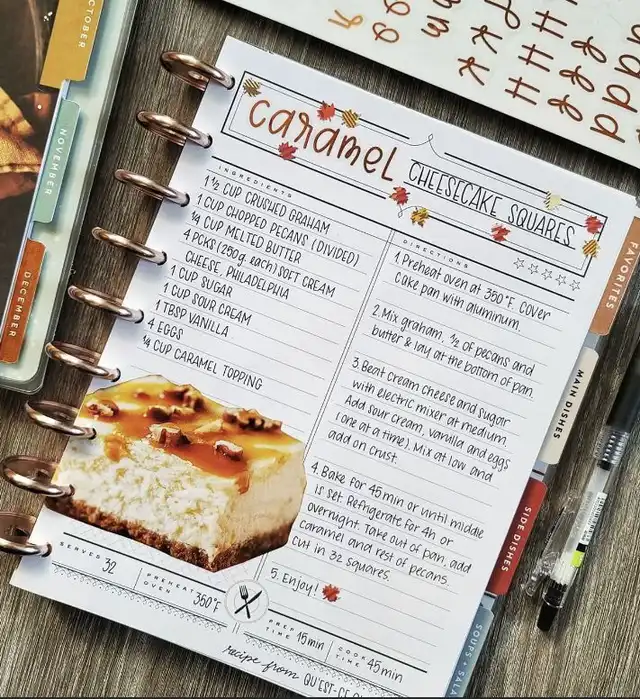 OCTOBER
NOVEMBER
DECEMBER
caramel
CHEESECAKE SQUARES
INGREDIENTS
1 ½ CUP CRUSHED GRAHAM
1 CUP CHOPPED PECANS (DIVIDED)
¼ CUP MELTED BUTTER
4 PCKS (250g. each) SOFT CREAM
CHEESE, PHILADELPHIA
1 CUP SUGAR
1 CUP SOUR CREAM
1 TBSP VANILLA
4 EGGS
¼ CUP CARAMEL TOPPING
DIRECTIONS
1. Preheat oven at 350°F. Cover
Cake pan with aluminum.
2. Mix graham, ½ of pecans and
butter & lay at the bottom of pan.
3. Beat cream cheese and sugar
with electric mixer at medium.
Add sour cream, vanilla and eggs
(one at a time). Mix at low and
add on crust.
4. Bake for 45 min or until middle
is set. Refrigerate for 4h or
overnight. Take out of pan, add
caramel and rest of pecans.
Cut in 32 squares.
5. Enjoy!
SERVES 32
PREHEAT OVEN 350°F
PREP TIME 15min
COOK TIME 45min
recipe from QU'EST-CE
FAVORITES
MAIN DISHES
SIDE DISHES
SOUPS +